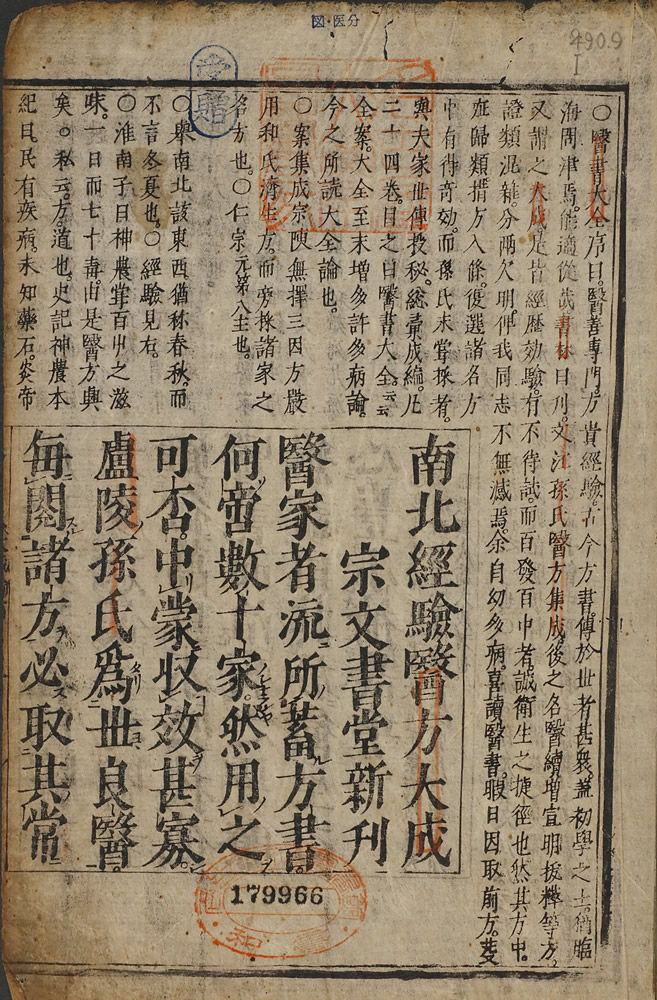 図・医分
490.9
I
〇醫書大全序曰。醫善專門。方貴經驗。古今方書傳於世者甚衆。蓋初學之士猶臨
海問津焉。能適從哉書林日刋。文江孫氏醫方集成。後之名醫續增宣明拔粹等方。
又謂之大成。是皆經歴効驗。有不待試。而百發百中者。誠衛生之捷徑也然其方中。
證類混雜。分兩欠明。俾我同志不無滅焉。余自幼多病。喜讀醫書。暇日因取前方。芟
歸類措方入條。復選諸名方
中有得奇効。而孫氏未甞採者。
與夫家世傳授秘。總彙成編。凡
二十四卷。目之曰醫書大全。云云
全案。大全至末增多許多病論。
今之所読大全論也。
〇案集成宗陳無擇三因方嚴
用和氏濟生方。而旁採諸家之
名方也。〇仁宗元第八主也。
〇與南北該東西猶称春秋。而
不言冬夏也。〇經驗見右。
〇淮南子曰神農甞百艸之滋
味。一日而七十毒。由是醫方興
矣。〇私云。方道也。史記神農本
紀曰。民有疾病。未知藥石。炎帝
南北經驗醫方大成
宗文書堂新刊
醫家者流所蓄方書。
何啻數十家。然用之
可否。中蒙収效甚寡。
盧陵孫氏爲世良醫。
每閱諸方必取其常
179966